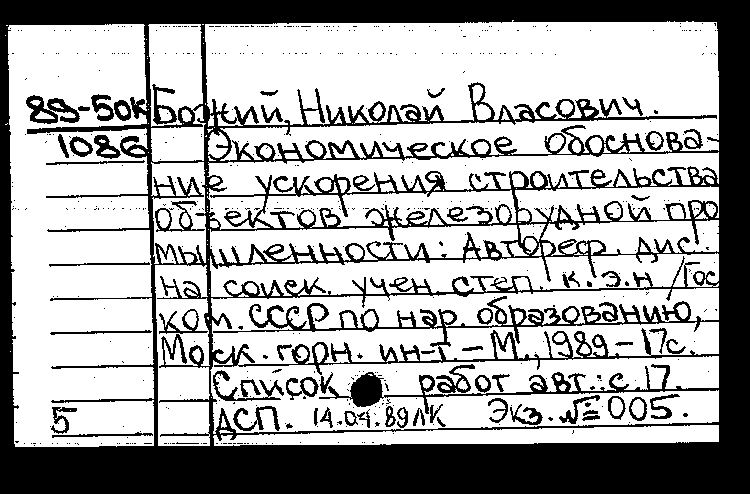 89-50к Божий, Николай Власович.
1086 Экономическое обоснова-
ние ускорения строительства
объектов железорудной про
мышленности: Автореф. дис.
на соиск. учен. степ. к.э.н /Гос
ком. СССР по нар. образованию,
Моск. горн. ин-т. - М., 1989.- 17с.
Список работ авт.: с.17.
5 ДСП. 14.04.89ЛК Экз. № 005.